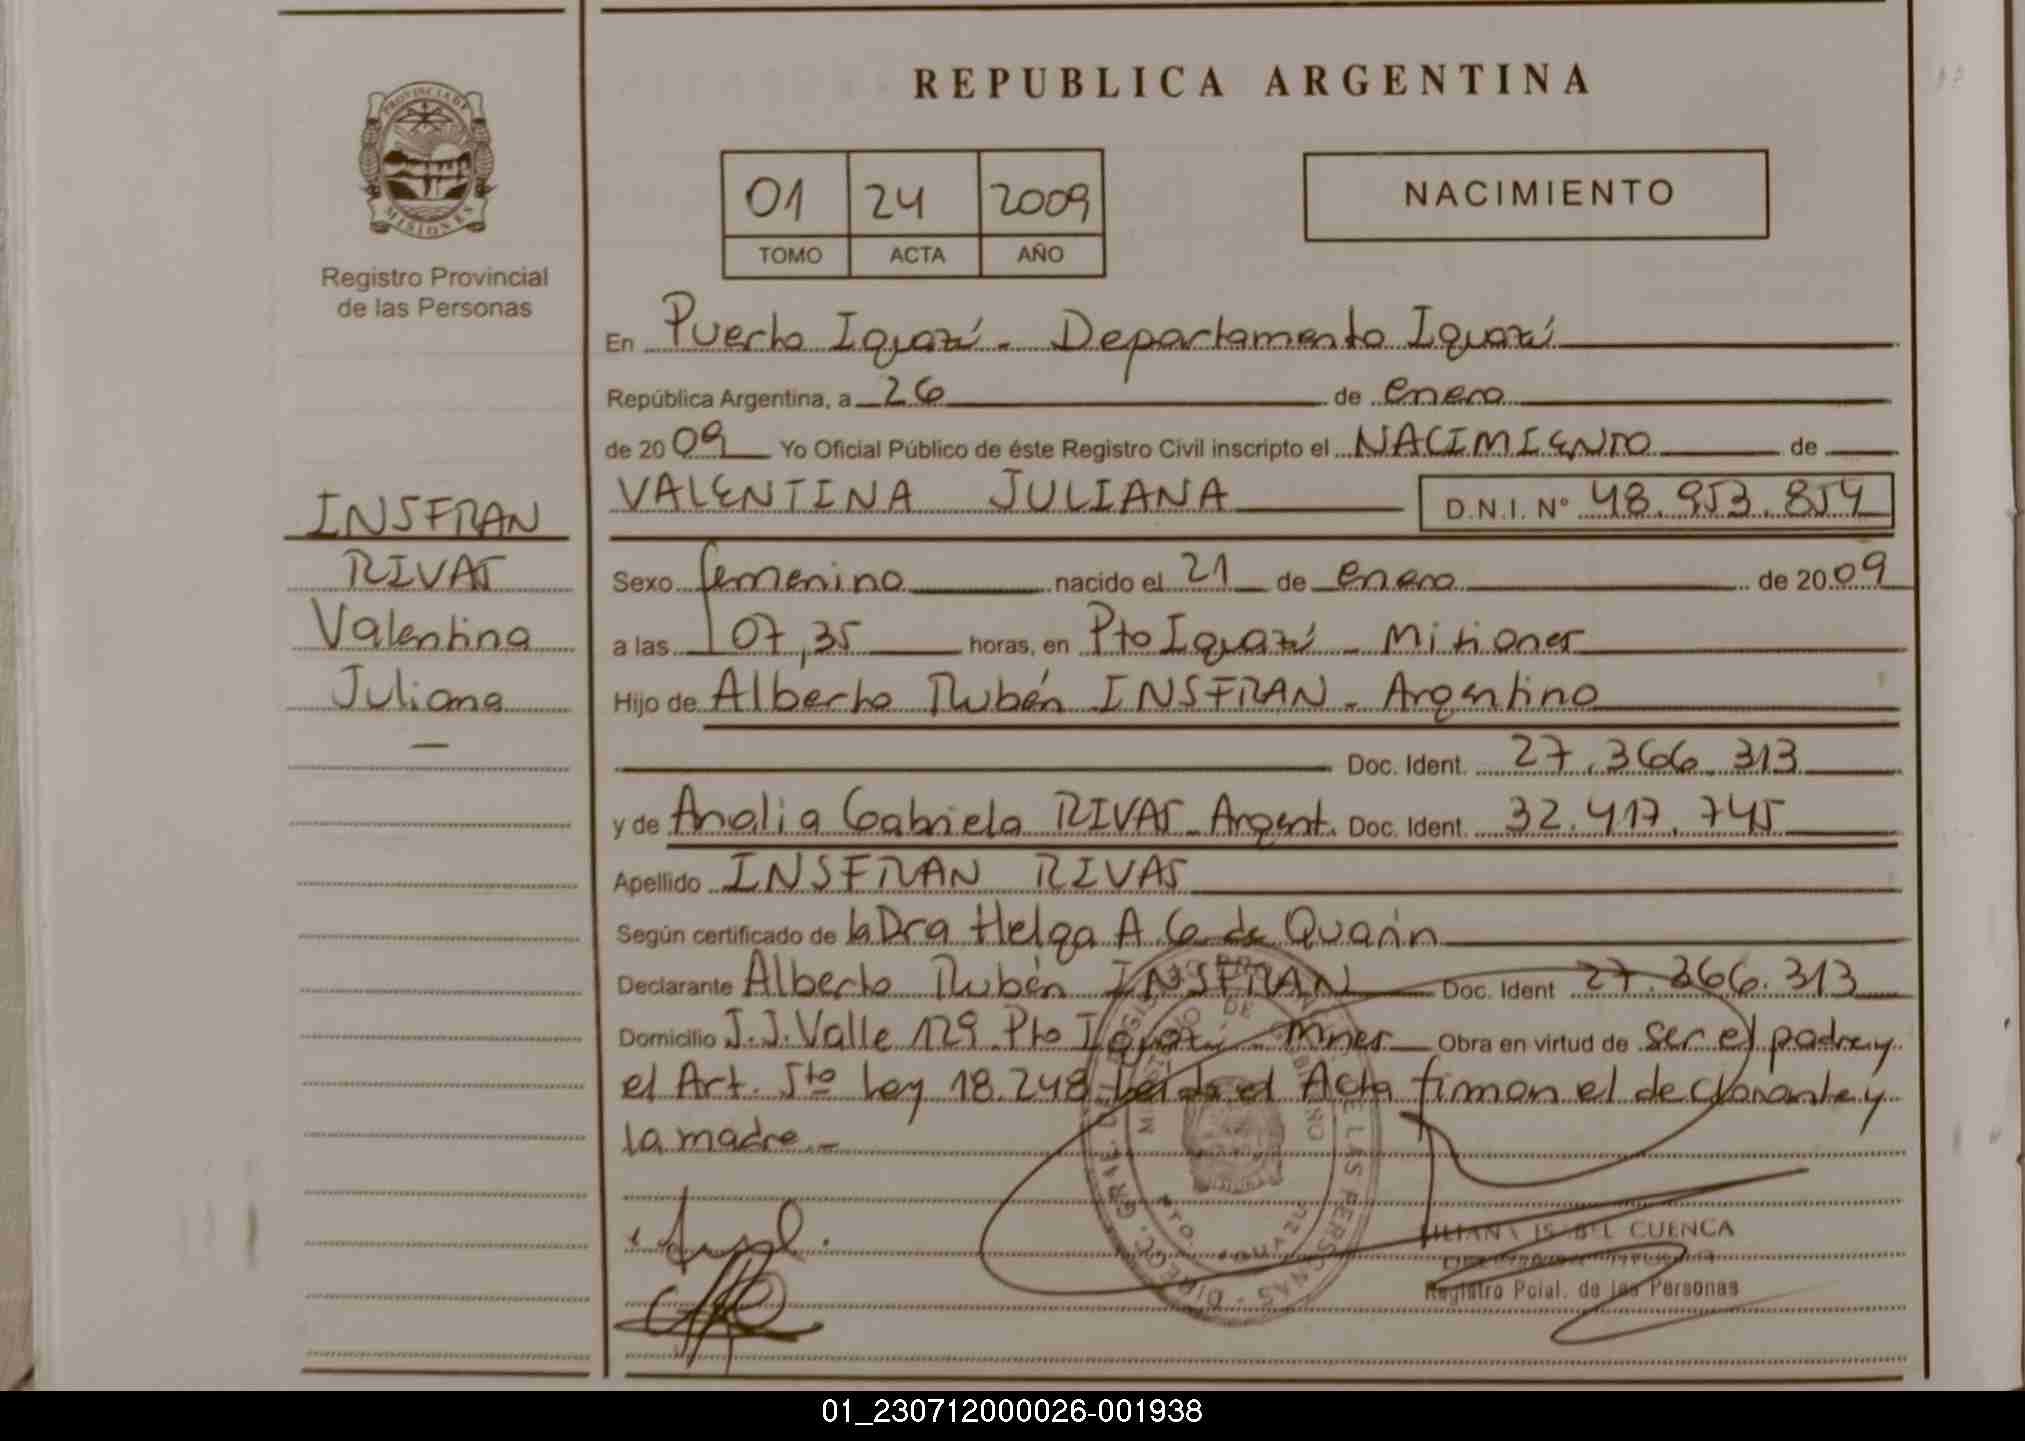 REPUBLICA ARGENTINA
PROVINCIA DE
MISIONES
Registro Provincial
de las Personas
01 24 2009
TOMO ACTA AÑO
NACIMIENTO
En Puerto Iguazú - Departamento Iguazú
República Argentina, a 26 de enero
de 2009 Yo Oficial Público de éste Registro Civil inscripto el NACIMIENTO de
VALENTINA JULIANA D.N.I. Nº 48.953.854
INSFRAN
RIVAS
Valentina
Juliana
Sexo femenino nacido el 21 de enero de 2009
a las 07,35 horas, en Pto Iguazú - Misiones
Hijo de Alberto Rubén INSFRAN - Argentino
Doc. Ident. 27.366.313
y de Analia Gabriela RIVAS Argent. Doc. Ident. 32.417.745
Apellido INSFRAN RIVAS
Según certificado de la Dra Helga A G de Quarin
Declarante Alberto Rubén INSFRAN Doc. Ident 27.366.313
Domicilio J.J. Valle 129 Pto Iguazú - Mnes Obra en virtud de ser el padre y
el Art. 5to Ley 18.248 Leida el Acta firman el declarante y
la madre.-
CUENCA
Registro Pcial. de las Personas
01_230712000026-001938